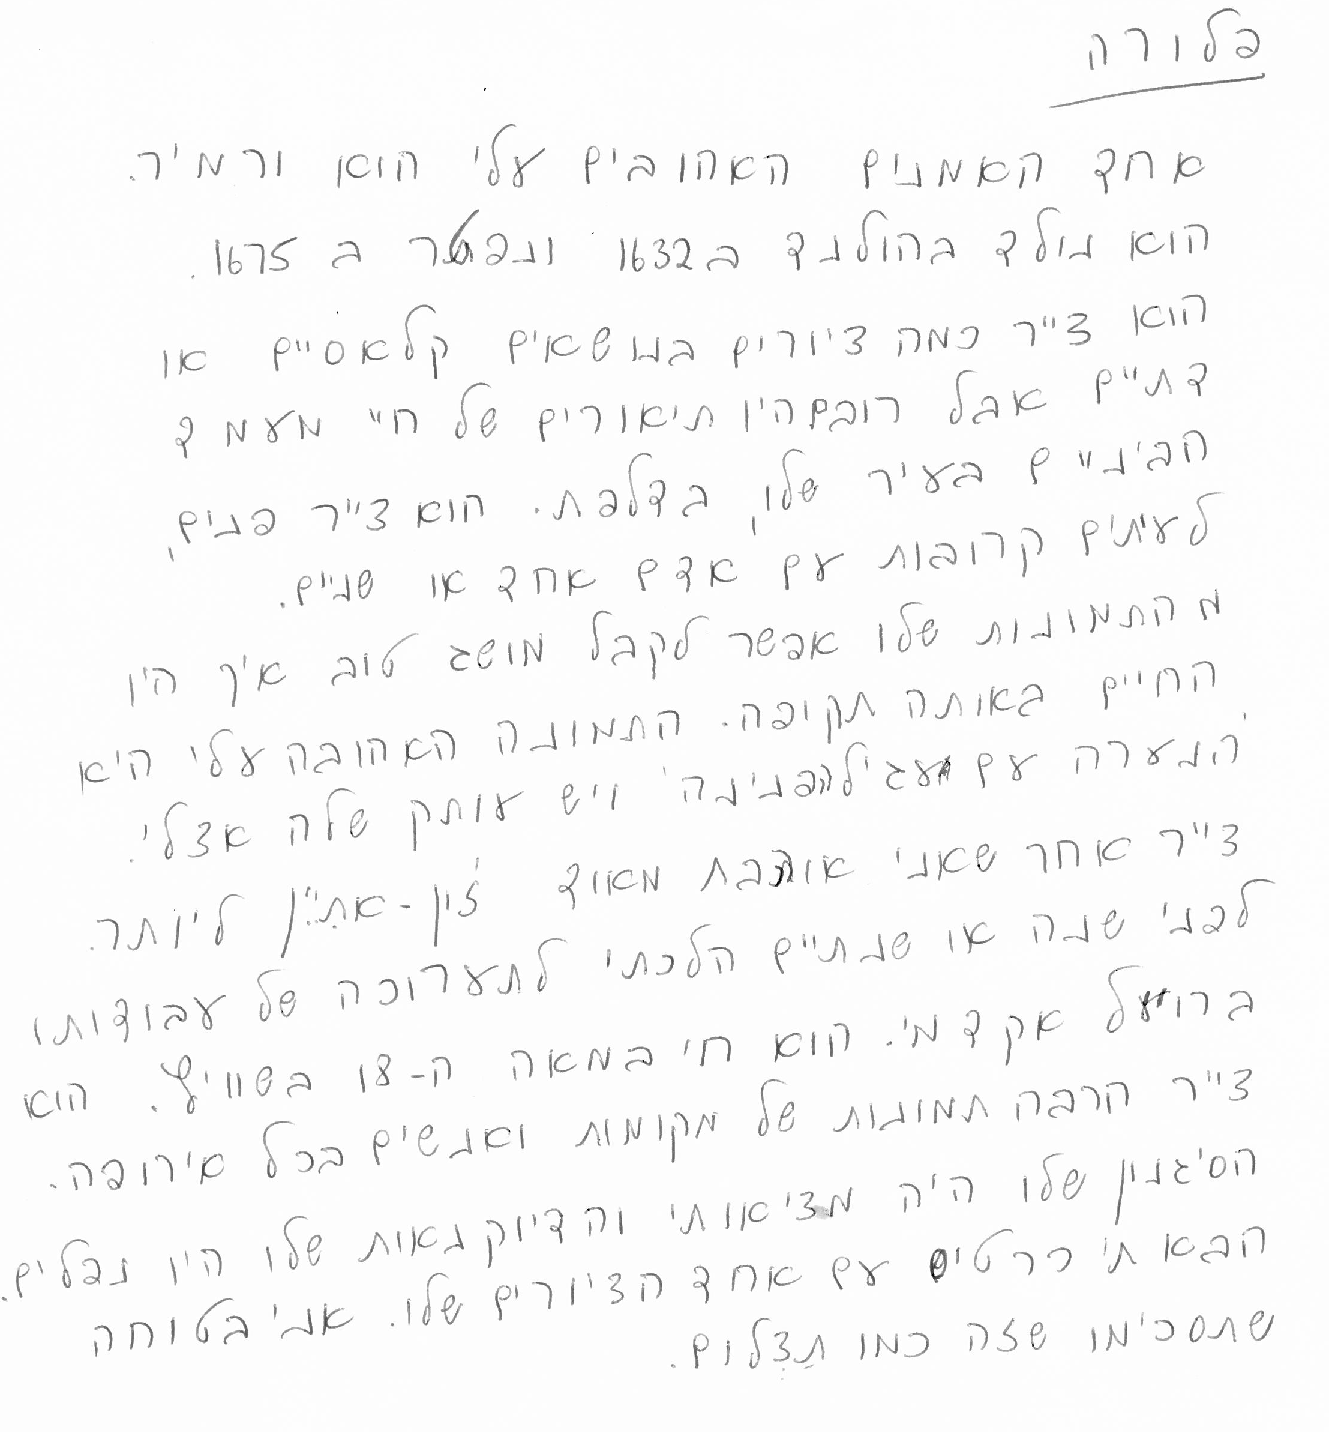 פלורה
אחד האמנים האהובים עלי הוא ורמיר.
הוא נולד בהולנד ב1632 ונפטר ב 1675.
הוא צייר כמה ציורים בנושאים קלאסיים או
דתיים אבל רובם היו תיאורים של חיי מעמד
הביניים בעיר שלו, בדלפת. הוא צייר פנים,
לעיתים קרובות עם אדם אחד או שניים.
מהתמונות שלו אפשר לקבל מושג טוב איך היו
החיים באותה תקופה. התמונה האהובה עלי היא
'הנערה עם עגיל הפנינה' ויש עותק שלה אצלי.
צייר אחר שאני אוהבת מאוד ז'ין-אתיין ליותר.
לפני שנה או שנתיים הלכתי לתערוכה של עבודותו
ברויאל אקדמי. הוא חי במאה ה-18 בשוויץ. הוא
צייר הרבה תמונות של מקומות ואנשים בכל אירופה.
הסיגנון שלו היה מציאותי והדיוקנאות שלו היו נפלים.
הבאתי כרטיס עם אחד הציורים שלו. אני בטוחה
שתסכימו שזה כמו תצלום.